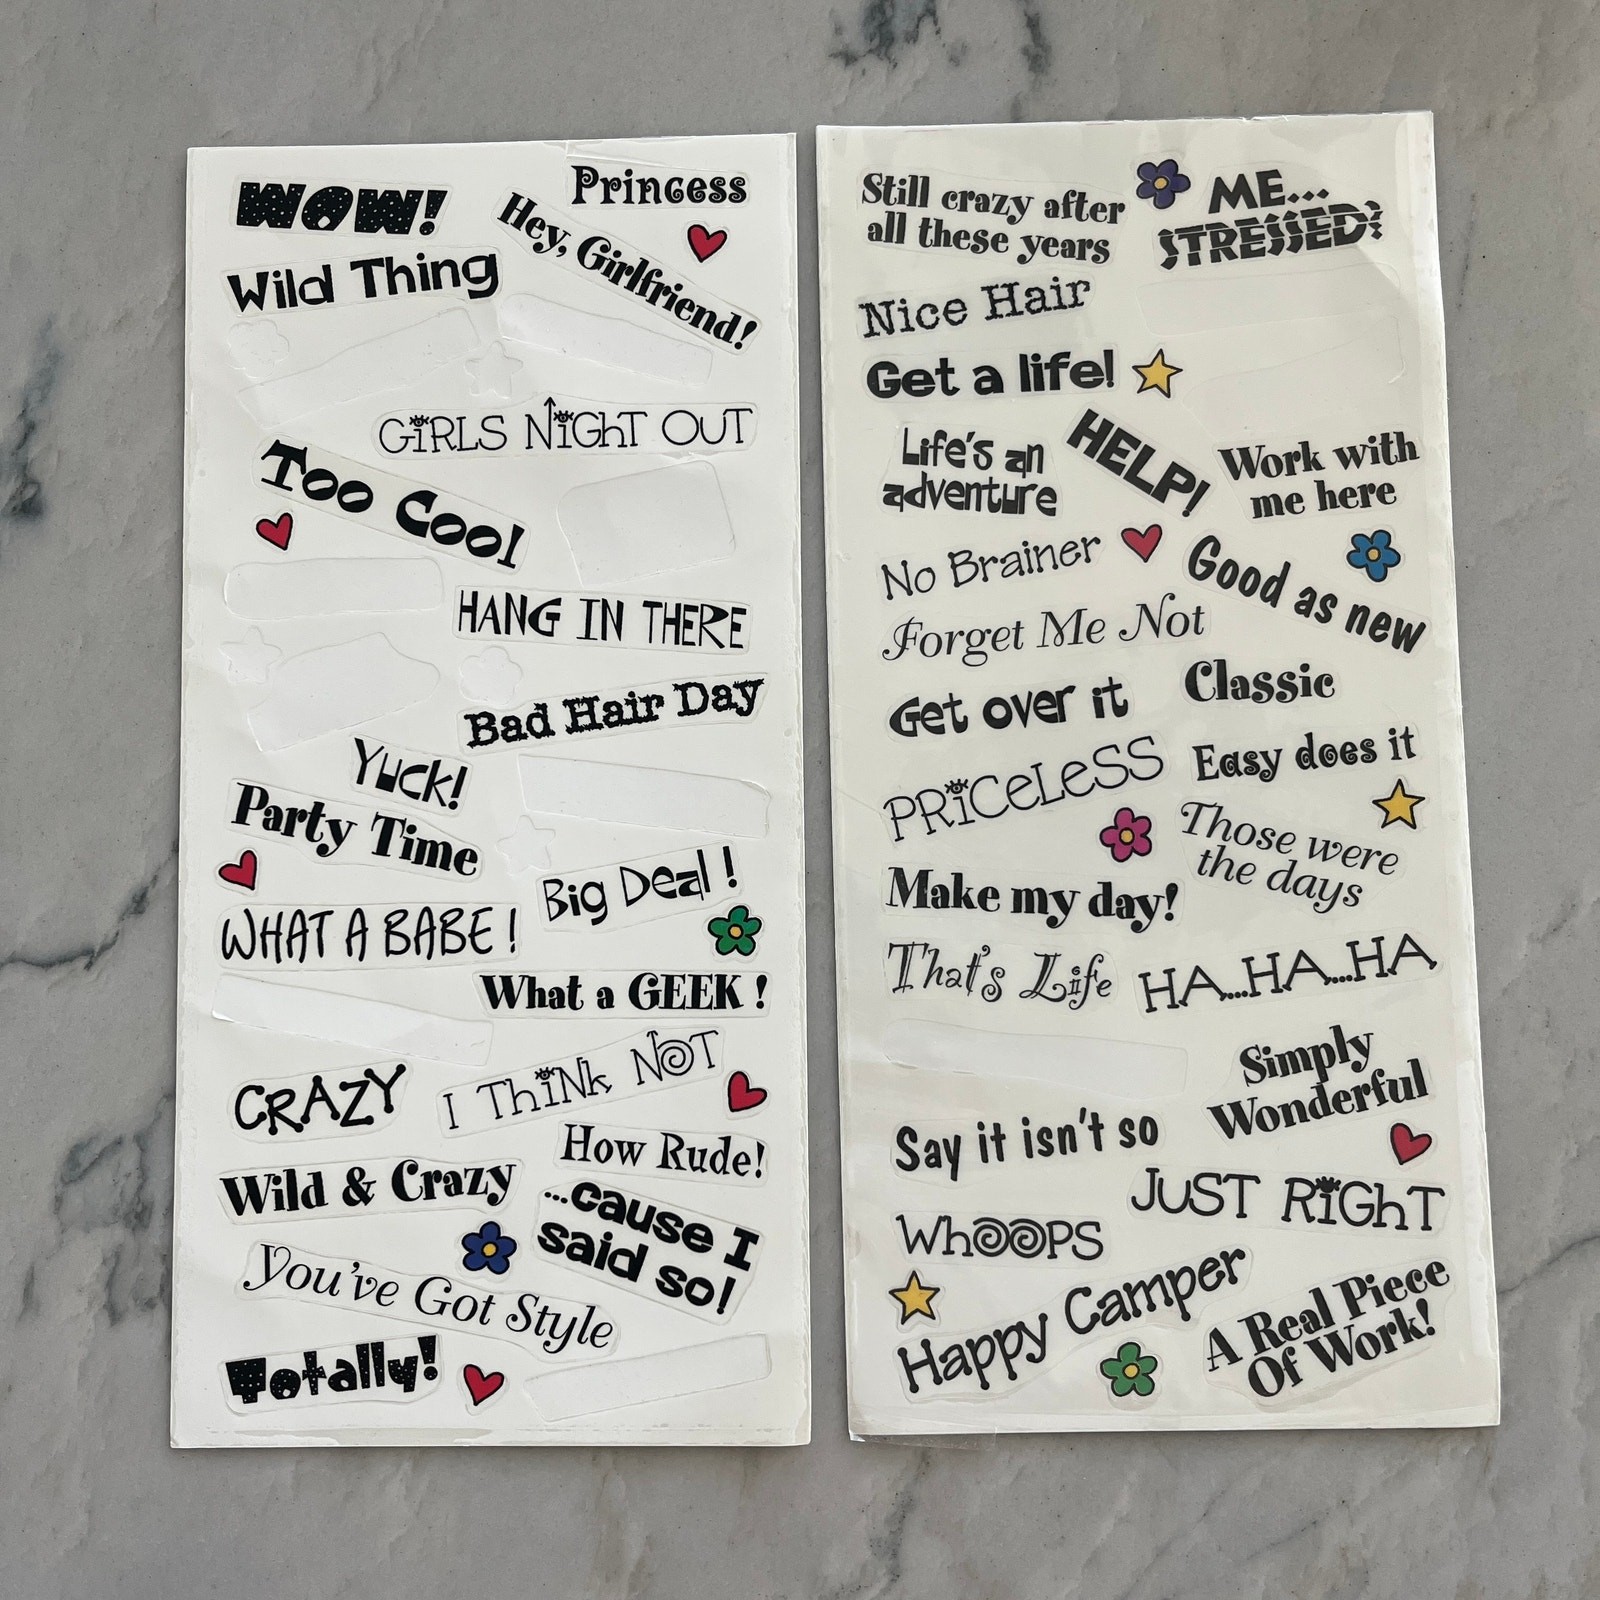 WOW!
Princess
Hey, Girlfriend!
Wild Thing
GiRLS NiGhT OUT
Too Cool
HANG IN THERE
Bad Hair Day
Yuck!
Party Time
Big Deal !
WHAT A BABE !
What a GEEK !
CRAZY
I ThiNk NOT
How Rude!
Wild & Crazy
...cause I
said so!
You've Got Style
Totally!
Still crazy after
all these years
ME...
STRESSED?
Nice Hair
Get a life!
Life's an
adventure
HELP!
Work with
me here
No Brainer
Good as new
Forget Me Not
Get over it
Classic
PRiCeLeSS
Easy does it
Those were
the days
Make my day!
That's Life
HA...HA...HA
Simply
Wonderful
Say it isn't so
JUST RiGhT
WhOOPS
Happy Camper
A Real Piece
Of Work!